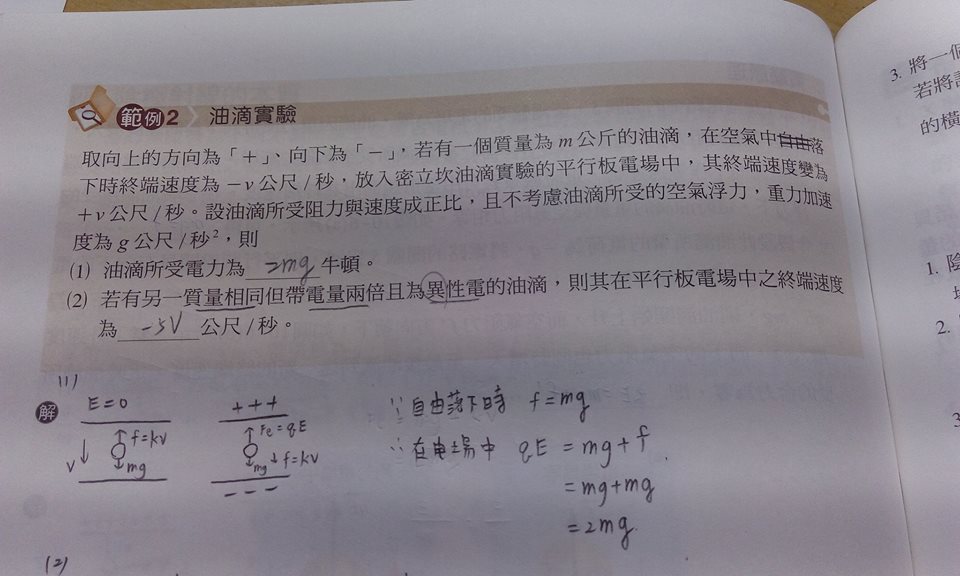 範例2 油滴實驗
取向上的方向為「+」、向下為「-」,若有一個質量為m公斤的油滴,在空氣中自由落
下時終端速度為-v公尺/秒,放入密立坎油滴實驗的平行板電場中,其終端速度變為
+v公尺/秒。設油滴所受阻力與速度成正比,且不考慮油滴所受的空氣浮力,重力加速
度為g公尺/秒²,則
(1) 油滴所受電力為 2mg 牛頓。
(2) 若有另一質量相同但帶電量兩倍且為異性電的油滴,則其在平行板電場中之終端速度
為 -5V 公尺/秒。
(1)
解
E=0
f=kv
v
mg
+++
Fe=qE
mg f=kv
---
∵自由落下時 f=mg
∴在电場中 qE = mg+f
= mg+mg
= 2mg
(2)
3. 將一個
若將
的橫
1. 陰
2.
3.